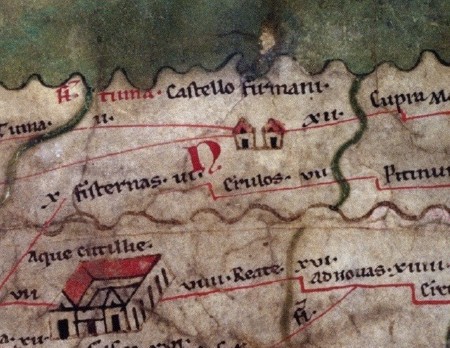 fl. Tinna. Castello firmani.
Tinna. II XII Cupra
N
X fisternas. III. Cirulos. VII Pitinu
Aque Cutillie.
VII VIIII Reate. XVI. Ad novas. XIIII
fl.
XII.